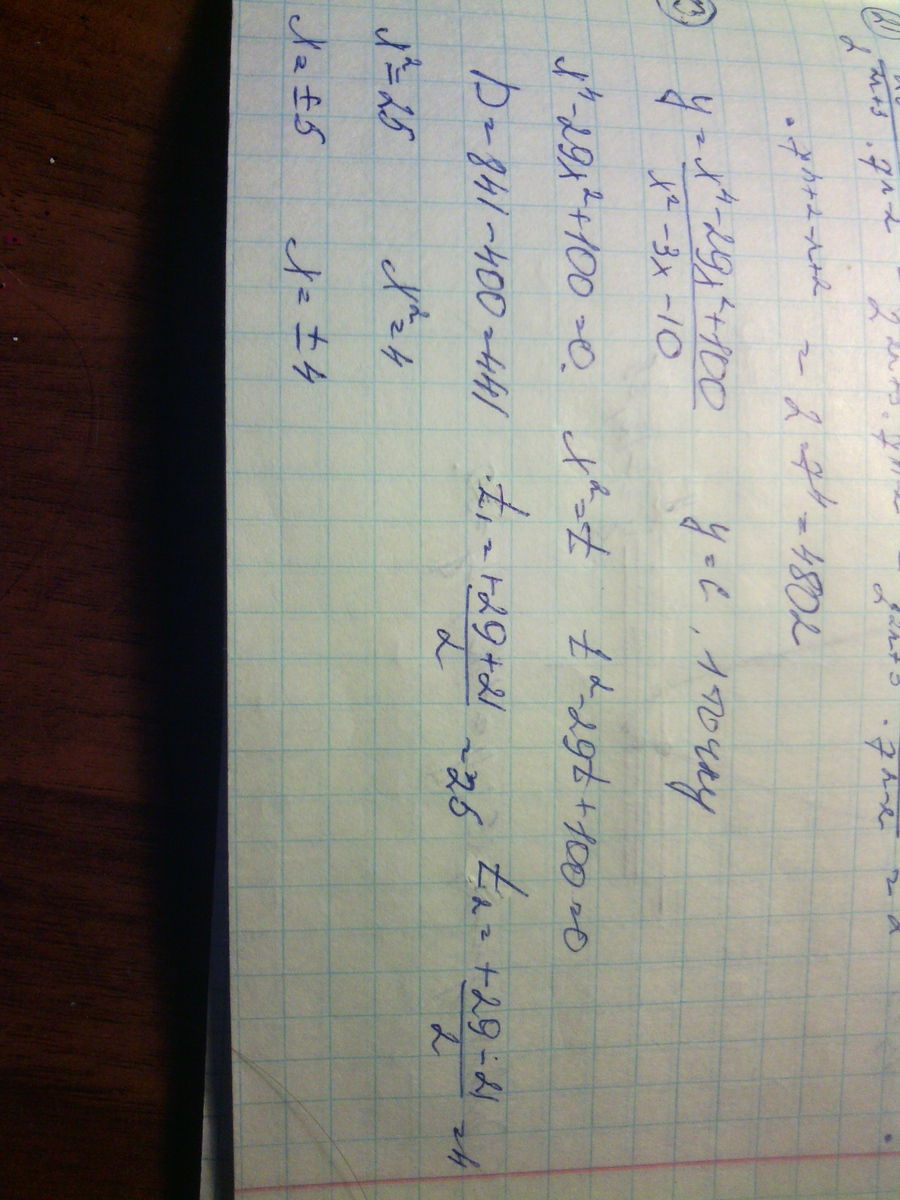 2)
2^{2n+3} · 7^{n-2} = 2^{2n+3} · 7^{n-2} = 2^{2n+3} · 7^{n-2} =
· 7^{n+2-n+2} = 2 · 7^4 = 4802
y = (x^4 - 29x^2 + 100)/(x^2 - 3x - 10)    y = c, 1 точку
x^4 - 29x^2 + 100 = 0.    x^2 = t    t^2 - 29t + 100 = 0
D = 841 - 400 = 441    t₁ = (+29 + 21)/2 = 25    t₂ = (+29 - 21)/2 = 4
x^2 = 25    x^2 = 4
x = ±5    x = ±4